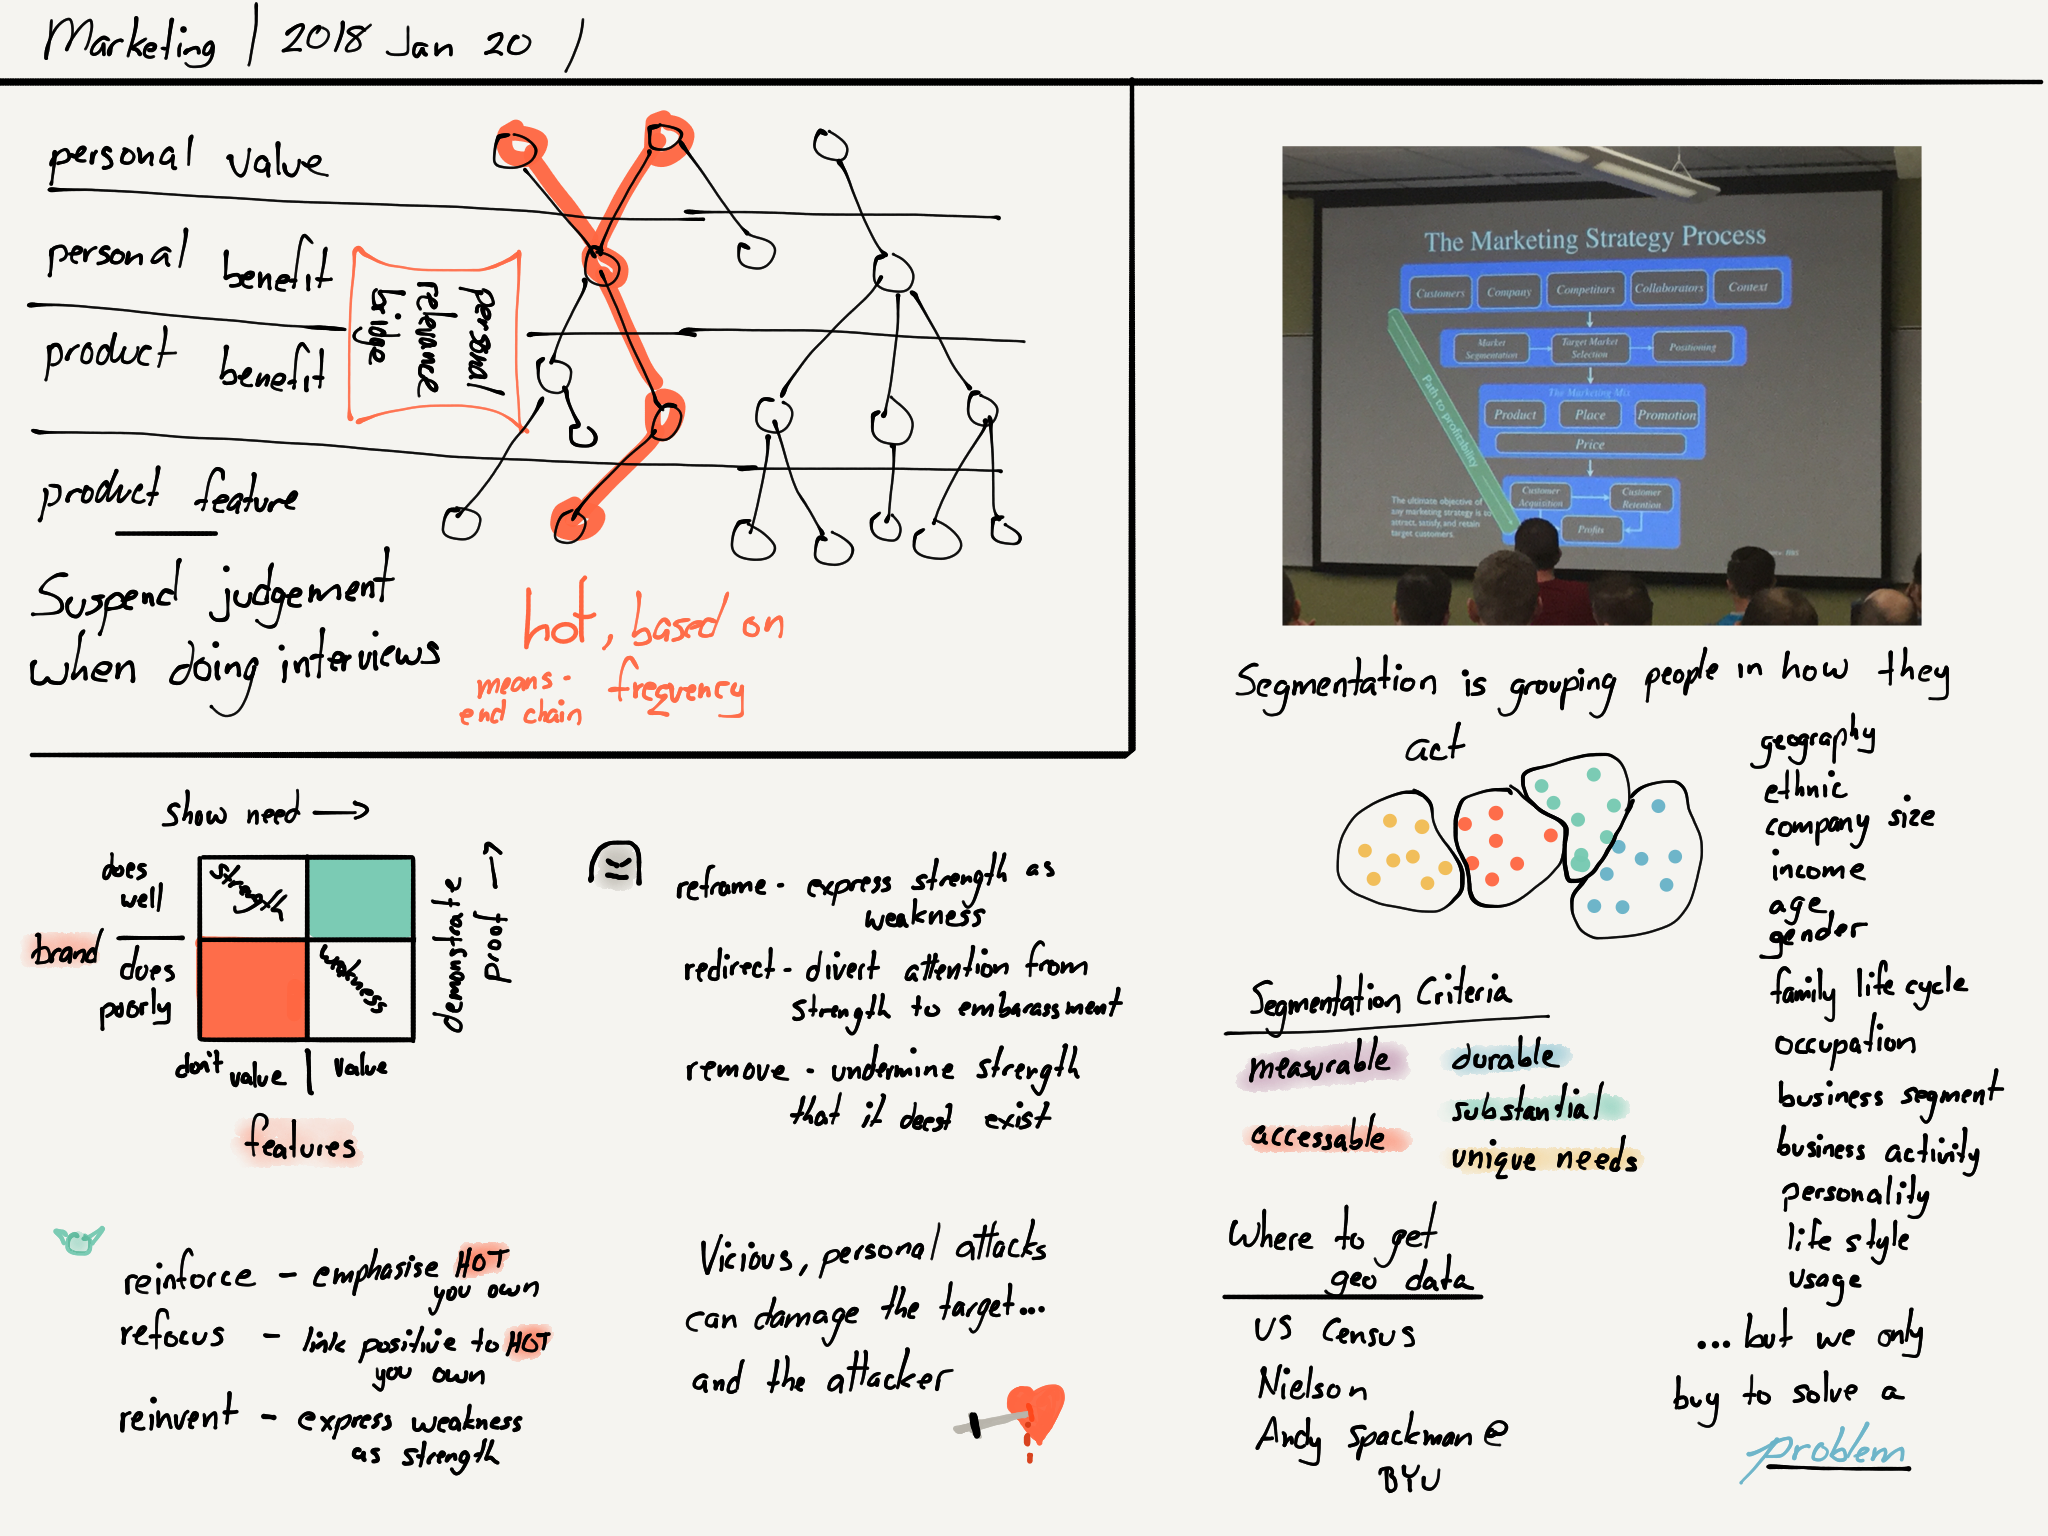 Marketing | 2018 Jan 20 |
personal value
personal benefit
product benefit
product feature
personal
relevance
bridge
Suspend judgement
when doing interviews
hot, based on
means-
end chain
frequency
show need →
does
well
brand
does
poorly
strength
weakness
demonstrate
proof →
don't value | value
features
reframe - express strength as
weakness
redirect - divert attention from
strength to embarassment
remove - undermine strength
that it doest exist
reinforce - emphasise HOT
you own
refocus - link positivie to HOT
you own
reinvent - express weakness
as strength
Vicious, personal attacks
can damage the target...
and the attacker
The Marketing Strategy Process
Customers Company Competitors Collaborators Context
Market
Segmentation
Target Market
Selection
Positioning
The Marketing Mix
Product Place Promotion
Price
Path to profitability
Customer
Acquisition
Customer
Retention
Profits
The ultimate objective of
any marketing strategy is to
attract, satisfy, and retain
target customers.
Segmentation is grouping people in how they
act
geography
ethnic
company size
income
age
gender
family life cycle
occupation
business segment
business activity
personality
life style
usage
Segmentation Criteria
measurable
accessable
durable
substantial
unique needs
Where to get
geo data
US Census
Nielson
Andy Spackman @
BYU
...but we only
buy to solve a
problem